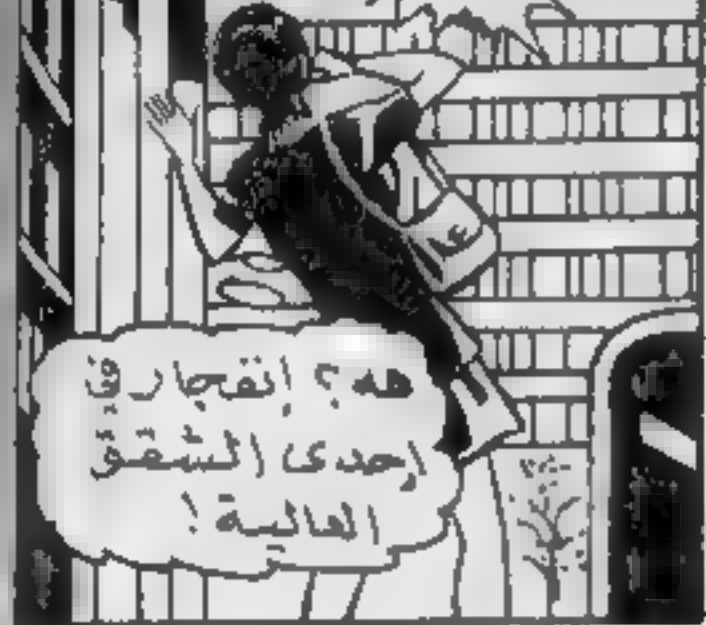 هه ؟ إنفجار في
إحدى الشقق
العالية !